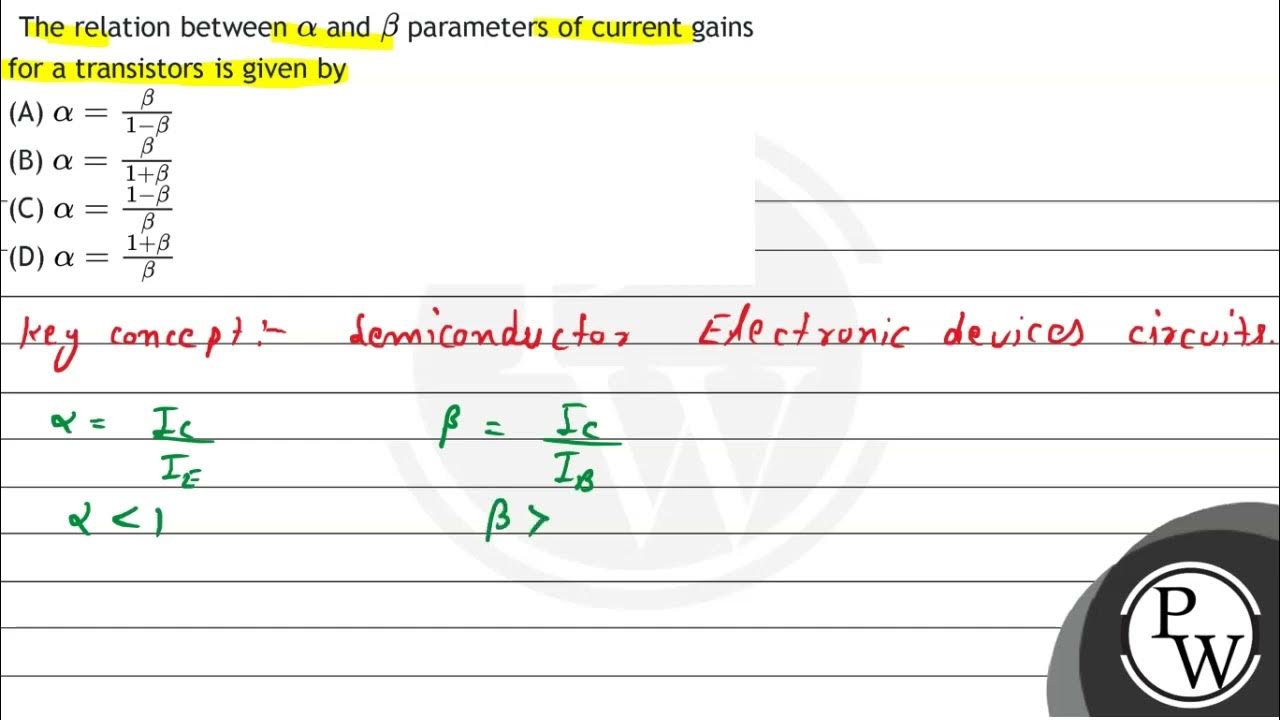 The relation between α and β parameters of current gains
for a transistors is given by
(A) α = β/(1−β)
(B) α = β/(1+β)
(C) α = (1−β)/β
(D) α = (1+β)/β
Key concept:- Semiconductor Electronic devices circuits.
α = I_C/I_E β = I_C/I_B
α < 1 β >
PW